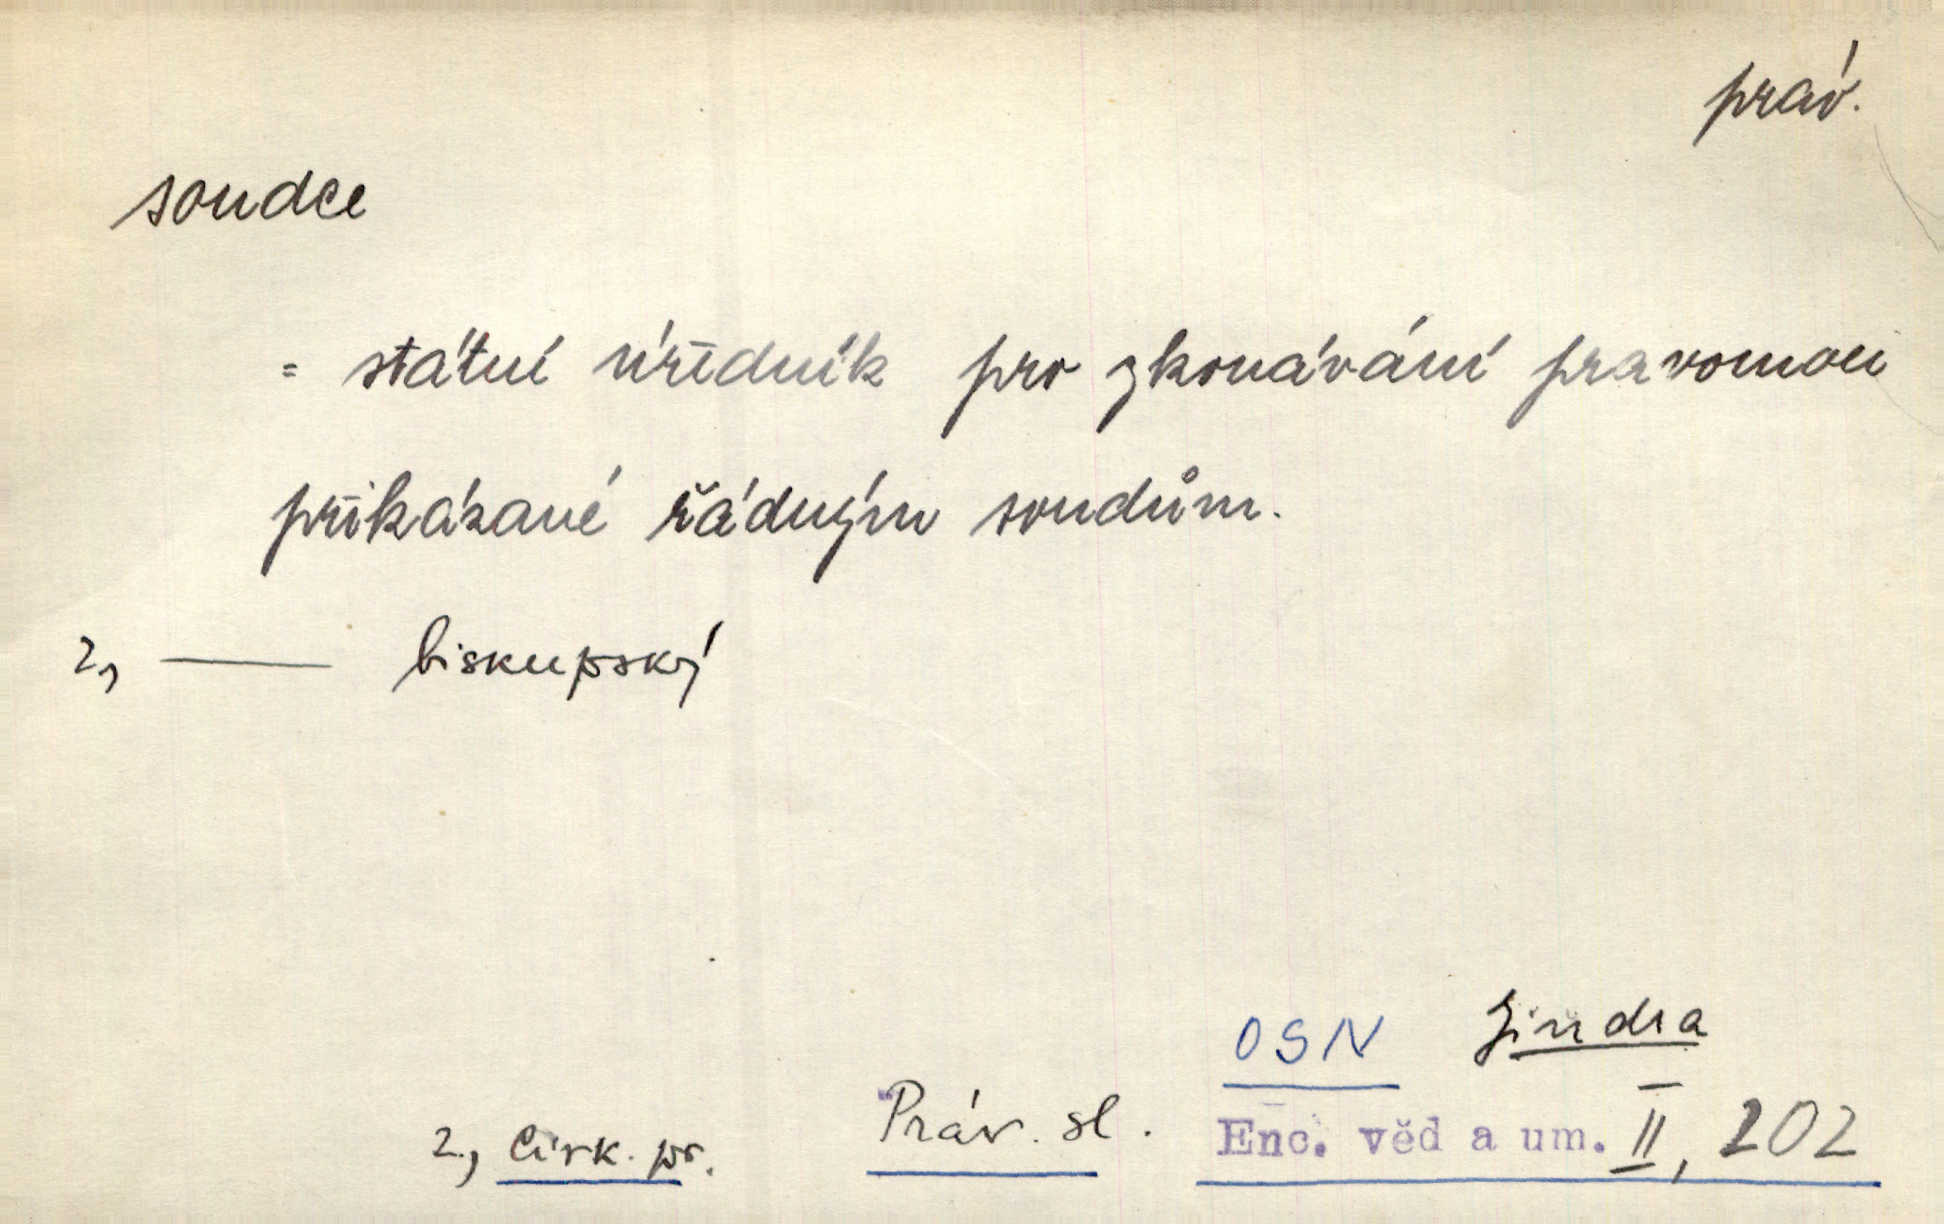 práv.
soudce
= státní úředník pro zkonávání pravomoci
přikázané řádným soudům.
2, ——— biskupský
OSN Jindra
2, Círk. pr. Práv. sl. Enc. věd a um. II, 202